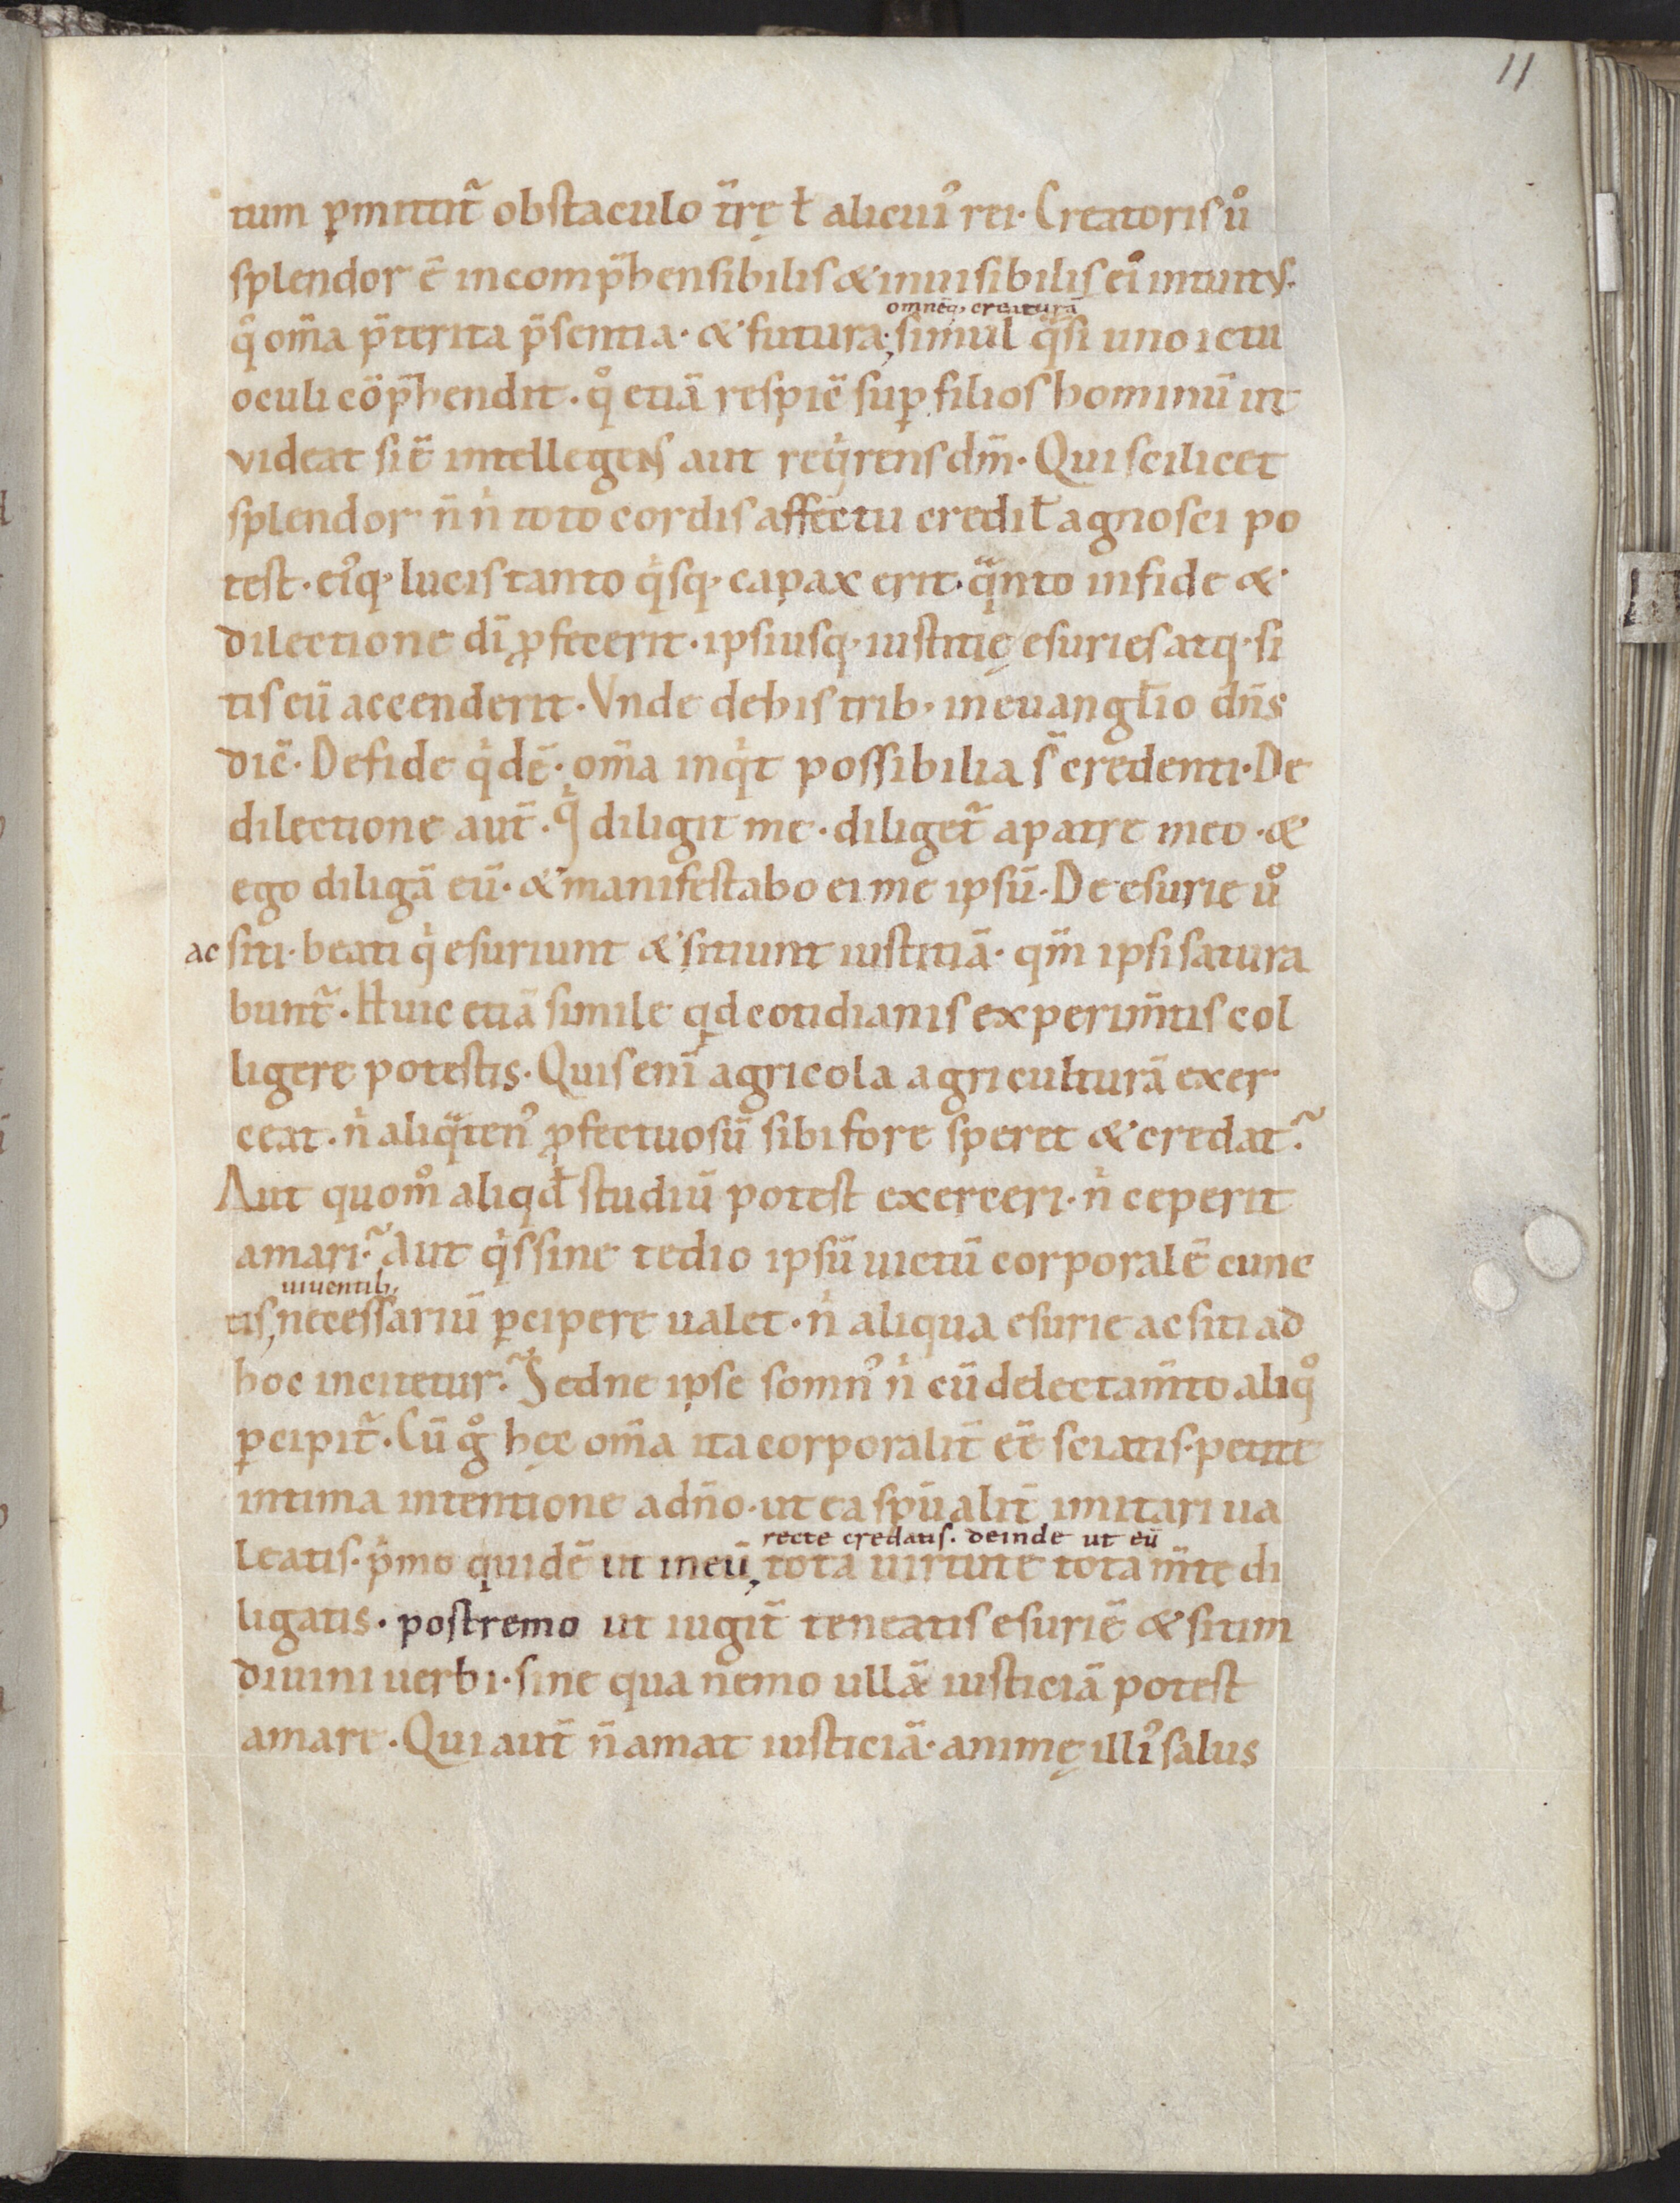 11
tum ꝑmittit᷑ obstaculo t̄rę ł alicuiꝰ rei. Creatoris uͦ
splendor ē incomp̄hensibilis & inuisibilis eiꝰ intuitꝰ.
qͦ om̄a p̄terita p̄sentia. & futura, simul qͣsi uno ictu
omnēq; creaturā
oculi cōp̄hendit. qͦ etiā respic̄ suꝑ filios hominū ut
videat si ē intellegens aut reqͥrens dm̄. Qui scilicet
splendor n̄ nͥ toto cordis affectu credit᷑ agnosci po
test. eiꝰq; lucis tanto qͥsq; capax erit. qͣnto in fide &
dilectione dī ꝓfecerit. ipsiusq; iustitię esuries atq; si
tis eū accenderit. Vnde de his trib; in euangłio dn̄s
dic̄. De fide qͥdē. om̄a inqͥt possibilia s̄ credenti. De
dilectione aut̄. Qͥ diligit me. diliget᷑ a patre meo. &
ego diligā eū. & manifestabo ei me ipsū. De esurie uͦ
ac siti. beati qͥ esuriunt & sitiunt iustitiā. qm̄ ipsi satura
bunt᷑. Huic etiā simile qd cotidianis experim̄tis col
ligere potestis. Quis enī agricola agriculturā exer
ceat. nͥ aliqͣtenꝰ ꝓfectuosū sibi fore speret & credat?
Aut quom̊ aliqd̄ studiū potest exerceri. nͥ ceperit
amari? Aut qͥs sine tedio ipsū uictū corporalē cunc
uiuentib;
tis, necessariū ꝑcipere ualet. nͥ aliqua esurie ac siti ad
hoc incitetur? Sed ne ipse somnꝰ nͥ cū delectam̄to aliqͦ
ꝑcipit᷑. Cū gͦ hęc om̄a ita corporalit̄ eē sciatis. petite
intima intentione a dn̄o. ut ea sp̄ualit̄ imitari ua
leatis. pͥmo quidē ut in eū, tota uirtute tota m̄te di
recte credatis. deinde ut eū
ligatis. postremo ut iugit̄ teneatis esuriē & sitim
diuini uerbi. sine qua nemo ullā iusticiā potest
amare. Qui aut̄ n̄ amat iusticiā. animę illiꝰ salus